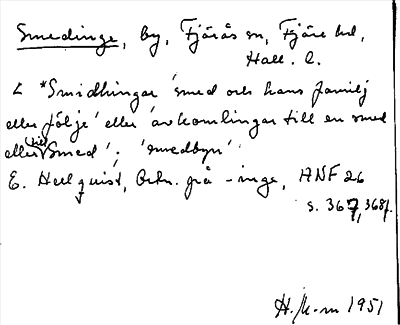 Smedinge, by, Fjärås sn, Fjäre hd,
Hall. l.
< *Smiðhingar 'smed och hans familj
eller följe' eller 'avkomlingar till en smed
eller till Smed'; 'smedbyn'.
E. Hellquist, Ortn. på -inge, ANF 26
s. 367, 368f.
H. 1951